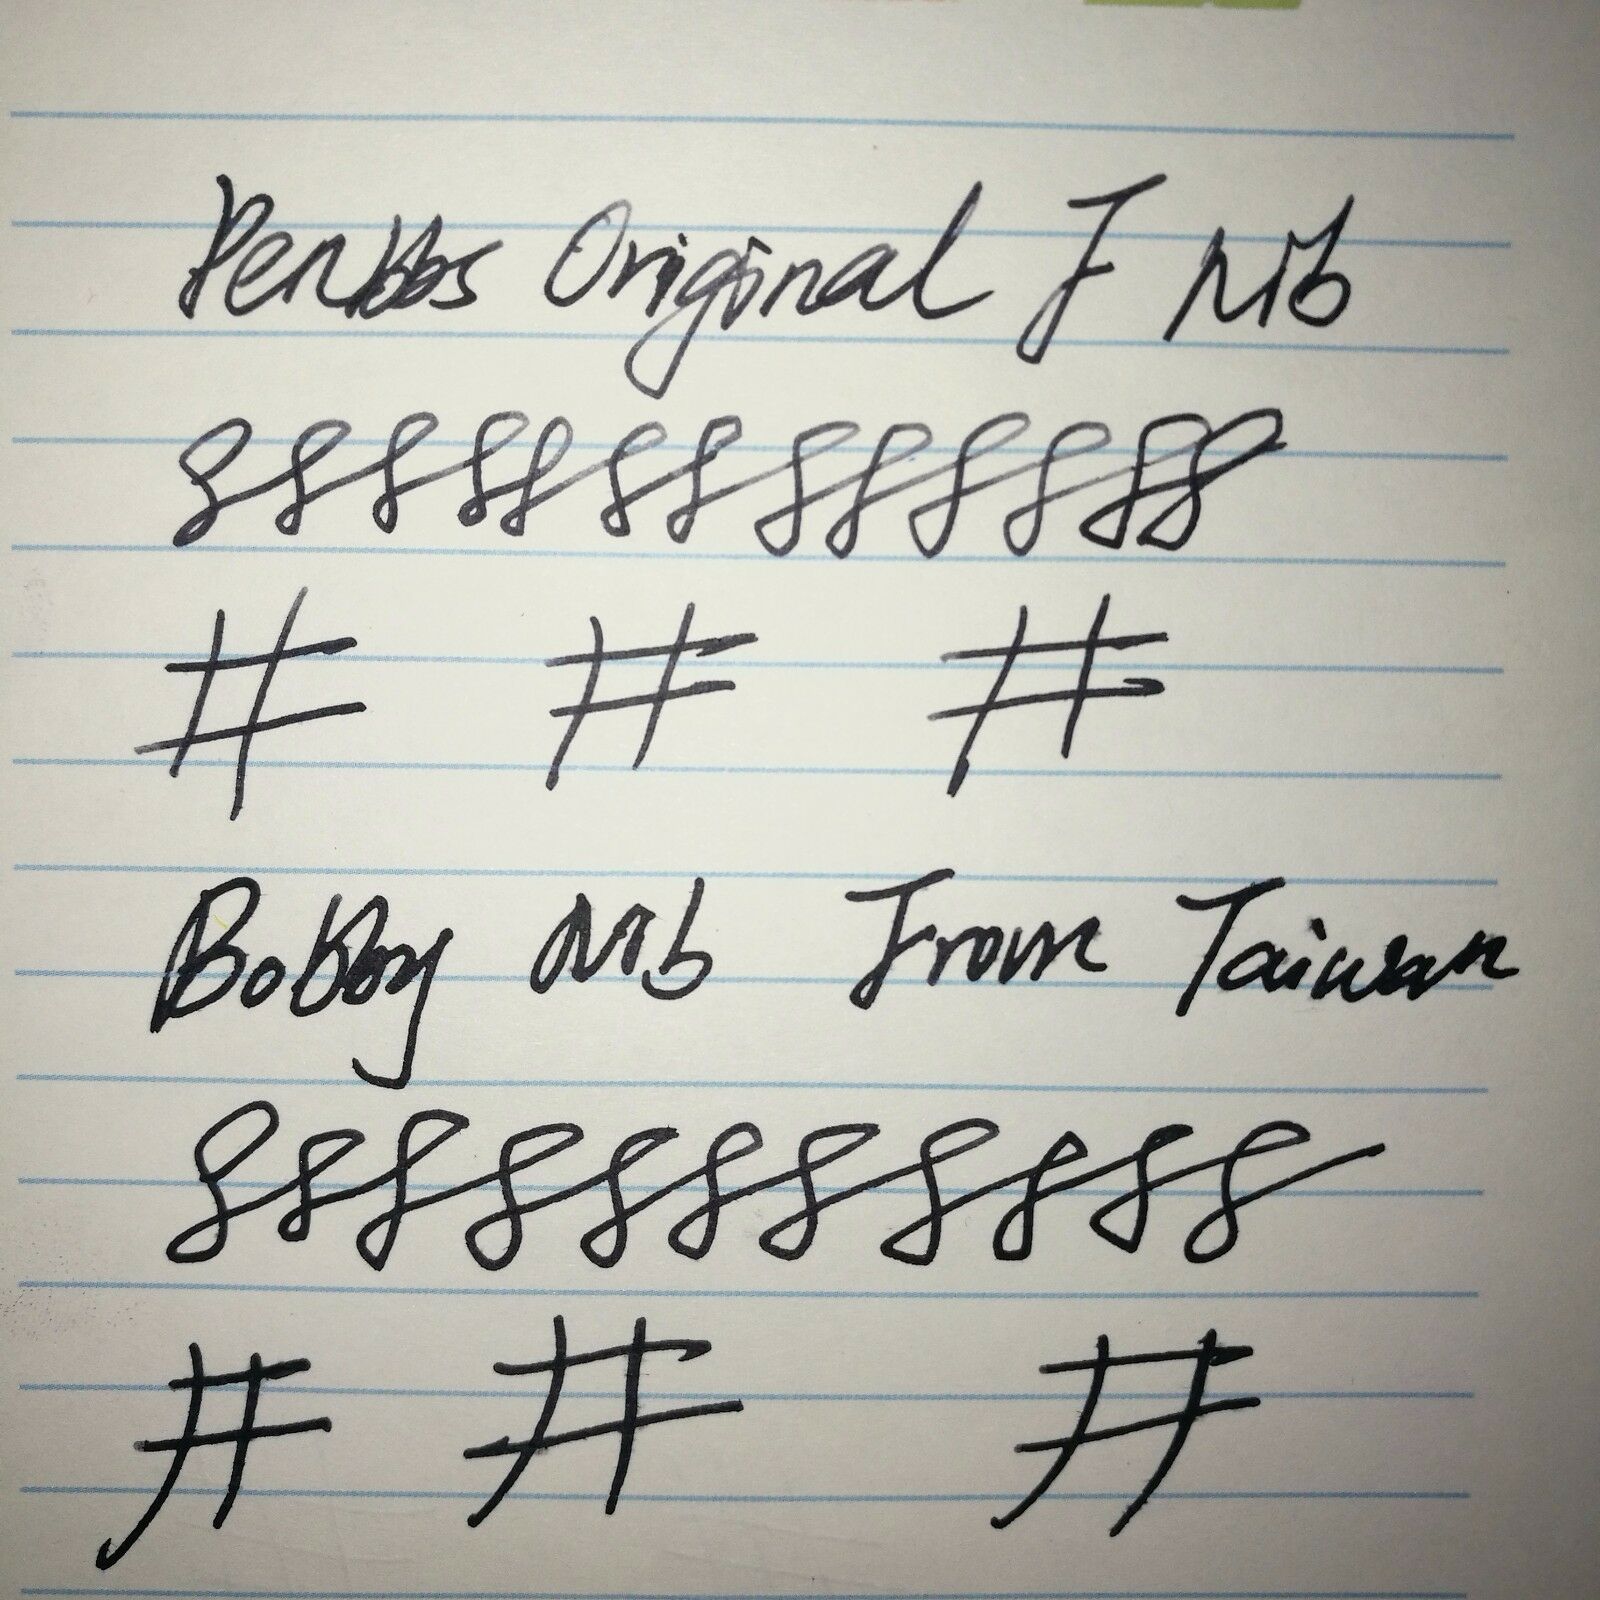 Penbbs Original F Nib
8888888888888
# # #
Bobby Nib From Taiwan
88888888888
# # #